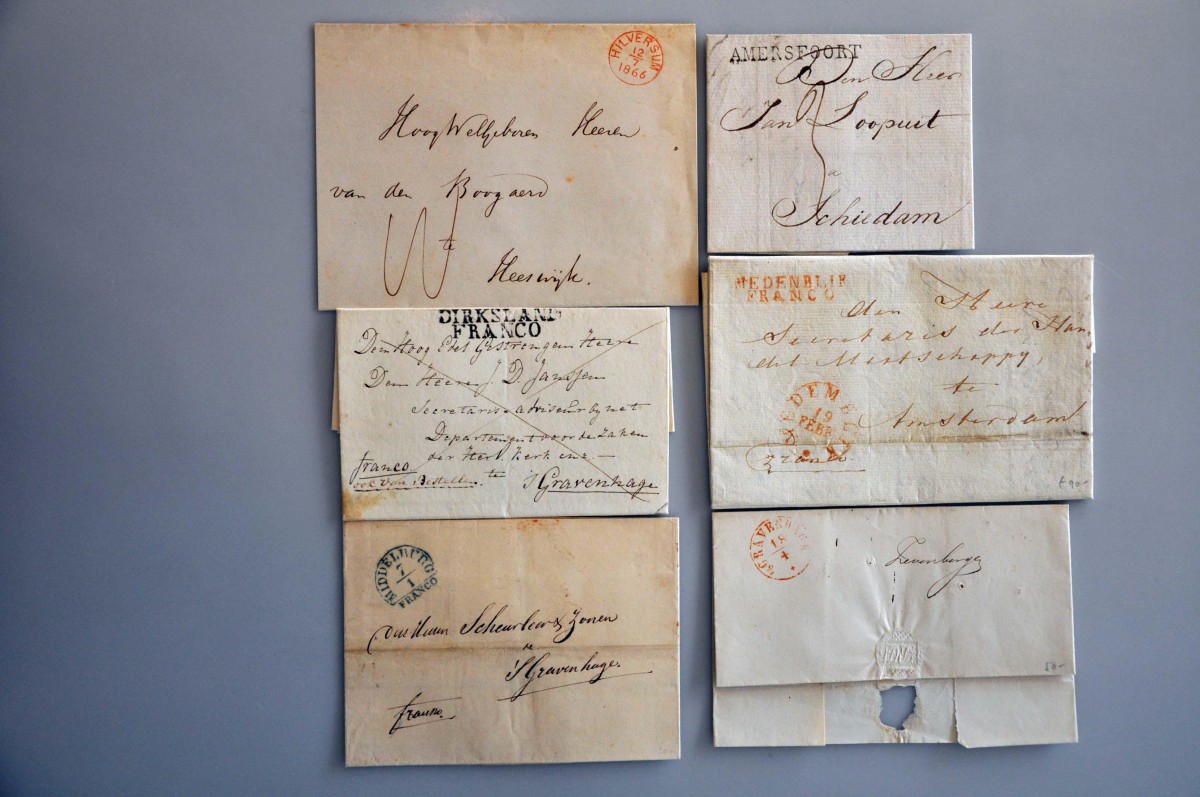 HILVERSUM
12
7
1866
HoogWelgeboren Heeren
van den Boogaerd
te
Heeswijk.
AMERSFOORT
Den Heer
Jan Loopuit
a
Schiedam
DIRKSLAND
FRANCO
Den Hoog Edel Gestrengen Heere
Den Heere J. D. Janssen
Secretaris & adviseur by het
Departement voor de Zaken
der Herv. Kerk enz. —
te
franco
ook van Bestellen.
'sGravenhage
MEDENBLIK
FRANCO
den Heere
Secretaris der Han
del Maatschappy,
te
Amsterdam
MEDEMBLIK
19
FEBR
franco
€ 90-
MIDDELBURG
7
1
FRANCO
Scheurleer & Zonen
te
'sGravenhage.
franco.
'sGRAVENHAGE
18
4
Zevenbergen
50-